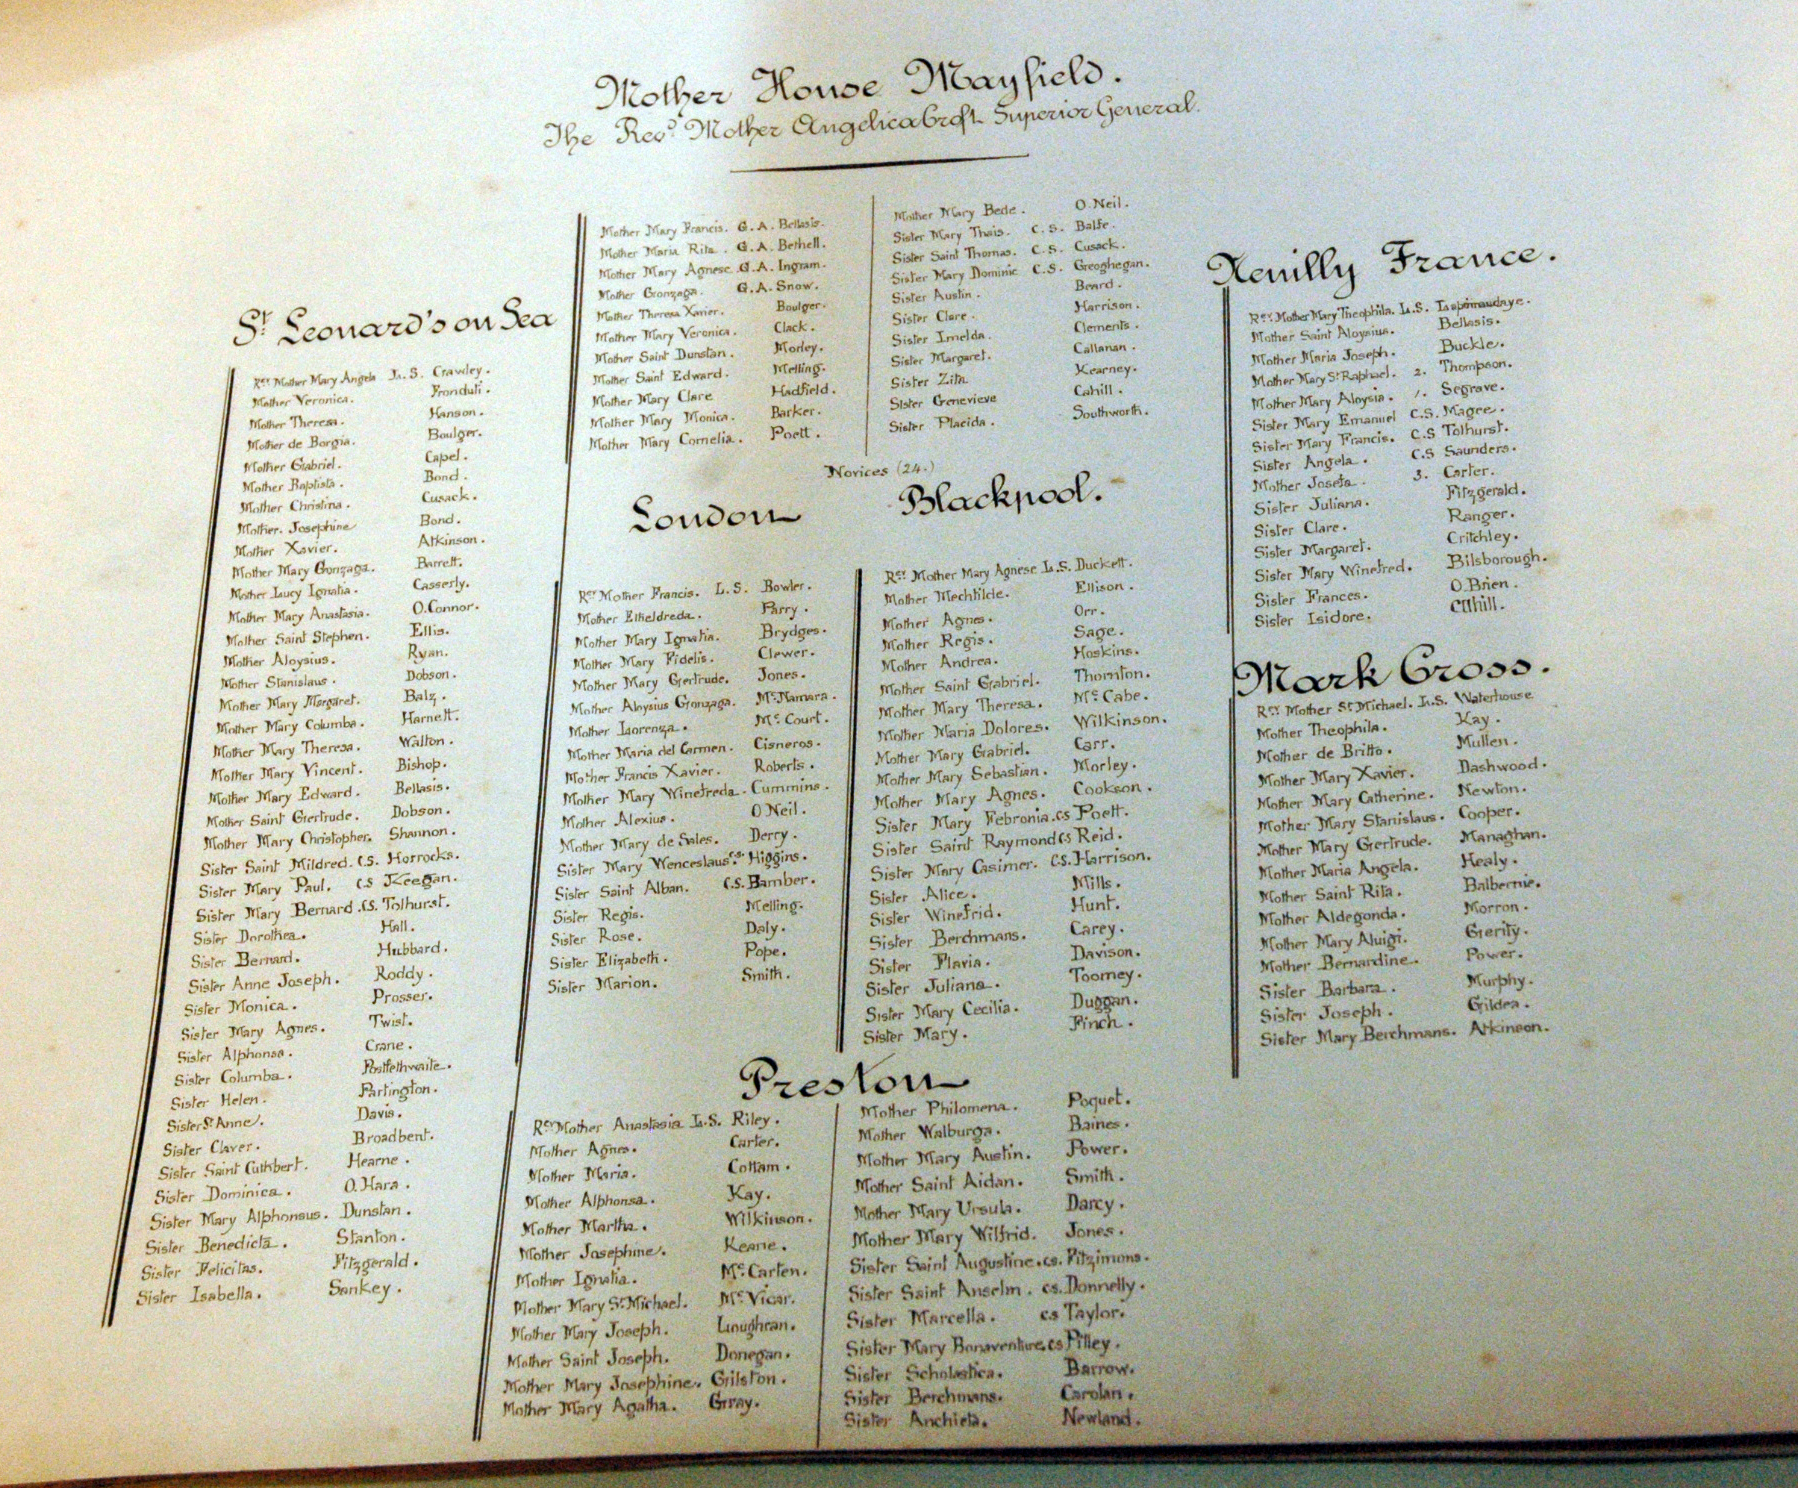 Mother House Mayfield.
The Revd. Mother Angelica Croft Superior General.
St Leonard's on Sea
Rev Mother Mary Angela L.S. Crawley.
Mother Veronica. Fronduti.
Mother Theresa. Hanson.
Mother de Borgia. Boulger.
Mother Gabriel. Capel.
Mother Baptista. Bond.
Mother Christina. Cusack.
Mother. Josephine Bond.
Mother Xavier. Atkinson.
Mother Mary Gonzaga. Barrett.
Mother Lucy Ignatia. Casserly.
Mother Mary Anastasia. O.Connor.
Mother Saint Stephen. Ellis.
Mother Aloysius. Ryan.
Mother Stanislaus. Dobson.
Mother Mary Margaret. Balz.
Mother Mary Columba. Harnett.
Mother Mary Theresa. Walton.
Mother Mary Vincent. Bishop.
Mother Mary Edward. Bellasis.
Mother Saint Gertrude. Dobson.
Mother Mary Christopher. Shannon.
Sister Saint Mildred. C.S. Horrocks.
Sister Mary Paul. C.S Keegan.
Sister Mary Bernard. C.S. Tolhurst.
Sister Dorothea. Hall.
Sister Bernard. Hubbard.
Sister Anne Joseph. Roddy.
Sister Monica. Prosser.
Sister Mary Agnes. Twist.
Sister Alphonsa. Crane.
Sister Columba. Postlethwaite.
Sister Helen. Partington.
Sister St. Anne. Davis.
Sister Claver. Broadbent.
Sister Saint Cuthbert. Hearne.
Sister Dominica. O.Hara.
Sister Mary Alphonsus. Dunstan.
Sister Benedicta. Stanton.
Sister Felicitas. Fitzgerald.
Sister Isabella. Sankey.
Mother Mary Francis. G.A. Bellasis.
Mother Maria Rita. G.A. Bethell.
Mother Mary Agnese. G.A. Ingram.
Mother Gonzaga. G.A. Snow.
Mother Theresa Xavier. Boulger.
Mother Mary Veronica. Clack.
Mother Saint Dunstan. Morley.
Mother Saint Edward. Melling.
Mother Mary Clare Hadfield.
Mother Mary Monica. Barker.
Mother Mary Cornelia. Poett.
Mother Mary Bede. O.Neil.
Sister Mary Thais. C.S. Balfe.
Sister Saint Thomas. C.S. Cusack.
Sister Mary Dominic C.S. Greoghegan.
Sister Austin. Beard.
Sister Clare. Harrison.
Sister Imelda. Clements.
Sister Margaret. Callanan.
Sister Zita. Kearney.
Sister Genevieve Cahill.
Sister Placida. Southworth.
Novices (24.)
London
Rev Mother Francis. L.S. Bowler.
Mother Etheldreda. Parry.
Mother Mary Ignatia. Brydges.
Mother Mary Fidelis. Clewer.
Mother Mary Gertrude. Jones.
Mother Aloysius Gonzaga. Mc.Namara.
Mother Lorenza. Mc.Court.
Mother Maria del Carmen. Cisneros.
Mother Francis Xavier. Roberts.
Mother Mary Winefreda. Cummins.
Mother Alexius. O Neil.
Mother Mary de Sales. Derry.
Sister Mary Wenceslaus. C.S. Higgins.
Sister Saint Alban. C.S. Bamber.
Sister Regis. Melling.
Sister Rose. Daly.
Sister Elizabeth. Pope.
Sister Marion. Smith.
Blackpool.
Rev Mother Mary Agnese L.S. Duckett.
Mother Mechtilde. Ellison.
Mother Agnes. Orr.
Mother Regis. Sage.
Mother Andrea. Hoskins.
Mother Saint Gabriel. Thornton.
Mother Mary Theresa. Mc.Cabe.
Mother Maria Dolores. Wilkinson.
Mother Mary Gabriel. Carr.
Mother Mary Sebastian. Morley.
Mother Mary Agnes. Cookson.
Sister Mary Febronia. cs Poett.
Sister Saint Raymond Cs Reid.
Sister Mary Casimer. cs. Harrison.
Sister Alice. Mills.
Sister Winefrid. Hunt.
Sister Berchmans. Carey.
Sister Flavia. Davison.
Sister Juliana. Toomey.
Sister Mary Cecilia. Duggan.
Sister Mary. Finch.
Preston
Rev Mother Anastasia L.S. Riley.
Mother Agnes. Carter.
Mother Maria. Cottam.
Mother Alphonsa. Kay.
Mother Martha. Wilkinson.
Mother Josephine. Keane.
Mother Ignatia. Mc.Carten.
Mother Mary St. Michael. Mc.Vicar.
Mother Mary Joseph. Loughran.
Mother Saint Joseph. Donegan.
Mother Mary Josephine. Gilston.
Mother Mary Agatha. Gray.
Mother Philomena. Poquet.
Mother Walburga. Baines.
Mother Mary Austin. Power.
Mother Saint Aidan. Smith.
Mother Mary Ursula. Darcy.
Mother Mary Wilfrid. Jones.
Sister Saint Augustine. cs. Fitzimons.
Sister Saint Anselm. cs. Donnelly.
Sister Marcella. cs Taylor.
Sister Mary Bonaventure. cs Pilley.
Sister Scholastica. Barrow.
Sister Berchmans. Carolan.
Sister Anchieta. Newland.
Neuilly France.
Rev. Mother Mary Theophila. L.S.
Mother Saint Aloysius. Bellasis.
Mother Maria Joseph. Buckle.
Mother Mary St Raphael. 2. Thompson.
Mother Mary Aloysia. 1. Segrave.
Sister Mary Emanuel C.S. Magee.
Sister Mary Francis. C.S Tolhurst.
Sister Angela. C.S Saunders.
Mother Josefa. 3. Carter.
Sister Juliana. Fitzgerald.
Sister Clare. Ranger.
Sister Margaret. Critchley.
Sister Mary Winefred. Bilsborough.
Sister Frances. O.Brien.
Sister Isidore. Cahill.
Mark Cross.
Rev Mother St Michael. L.S. Waterhouse
Mother Theophila. Kay.
Mother de Britto. Mullen.
Mother Mary Xavier. Dashwood.
Mother Mary Catherine. Newton.
Mother Mary Stanislaus. Cooper.
Mother Mary Gertrude. Managhan.
Mother Maria Angela. Healy.
Mother Saint Rita. Balbernie.
Mother Aldegonda. Morron.
Mother Mary Aluigi. Gerity.
Mother Bernardine. Power.
Sister Barbara. Murphy.
Sister Joseph. Gildea.
Sister Mary Berchmans. Atkinson.